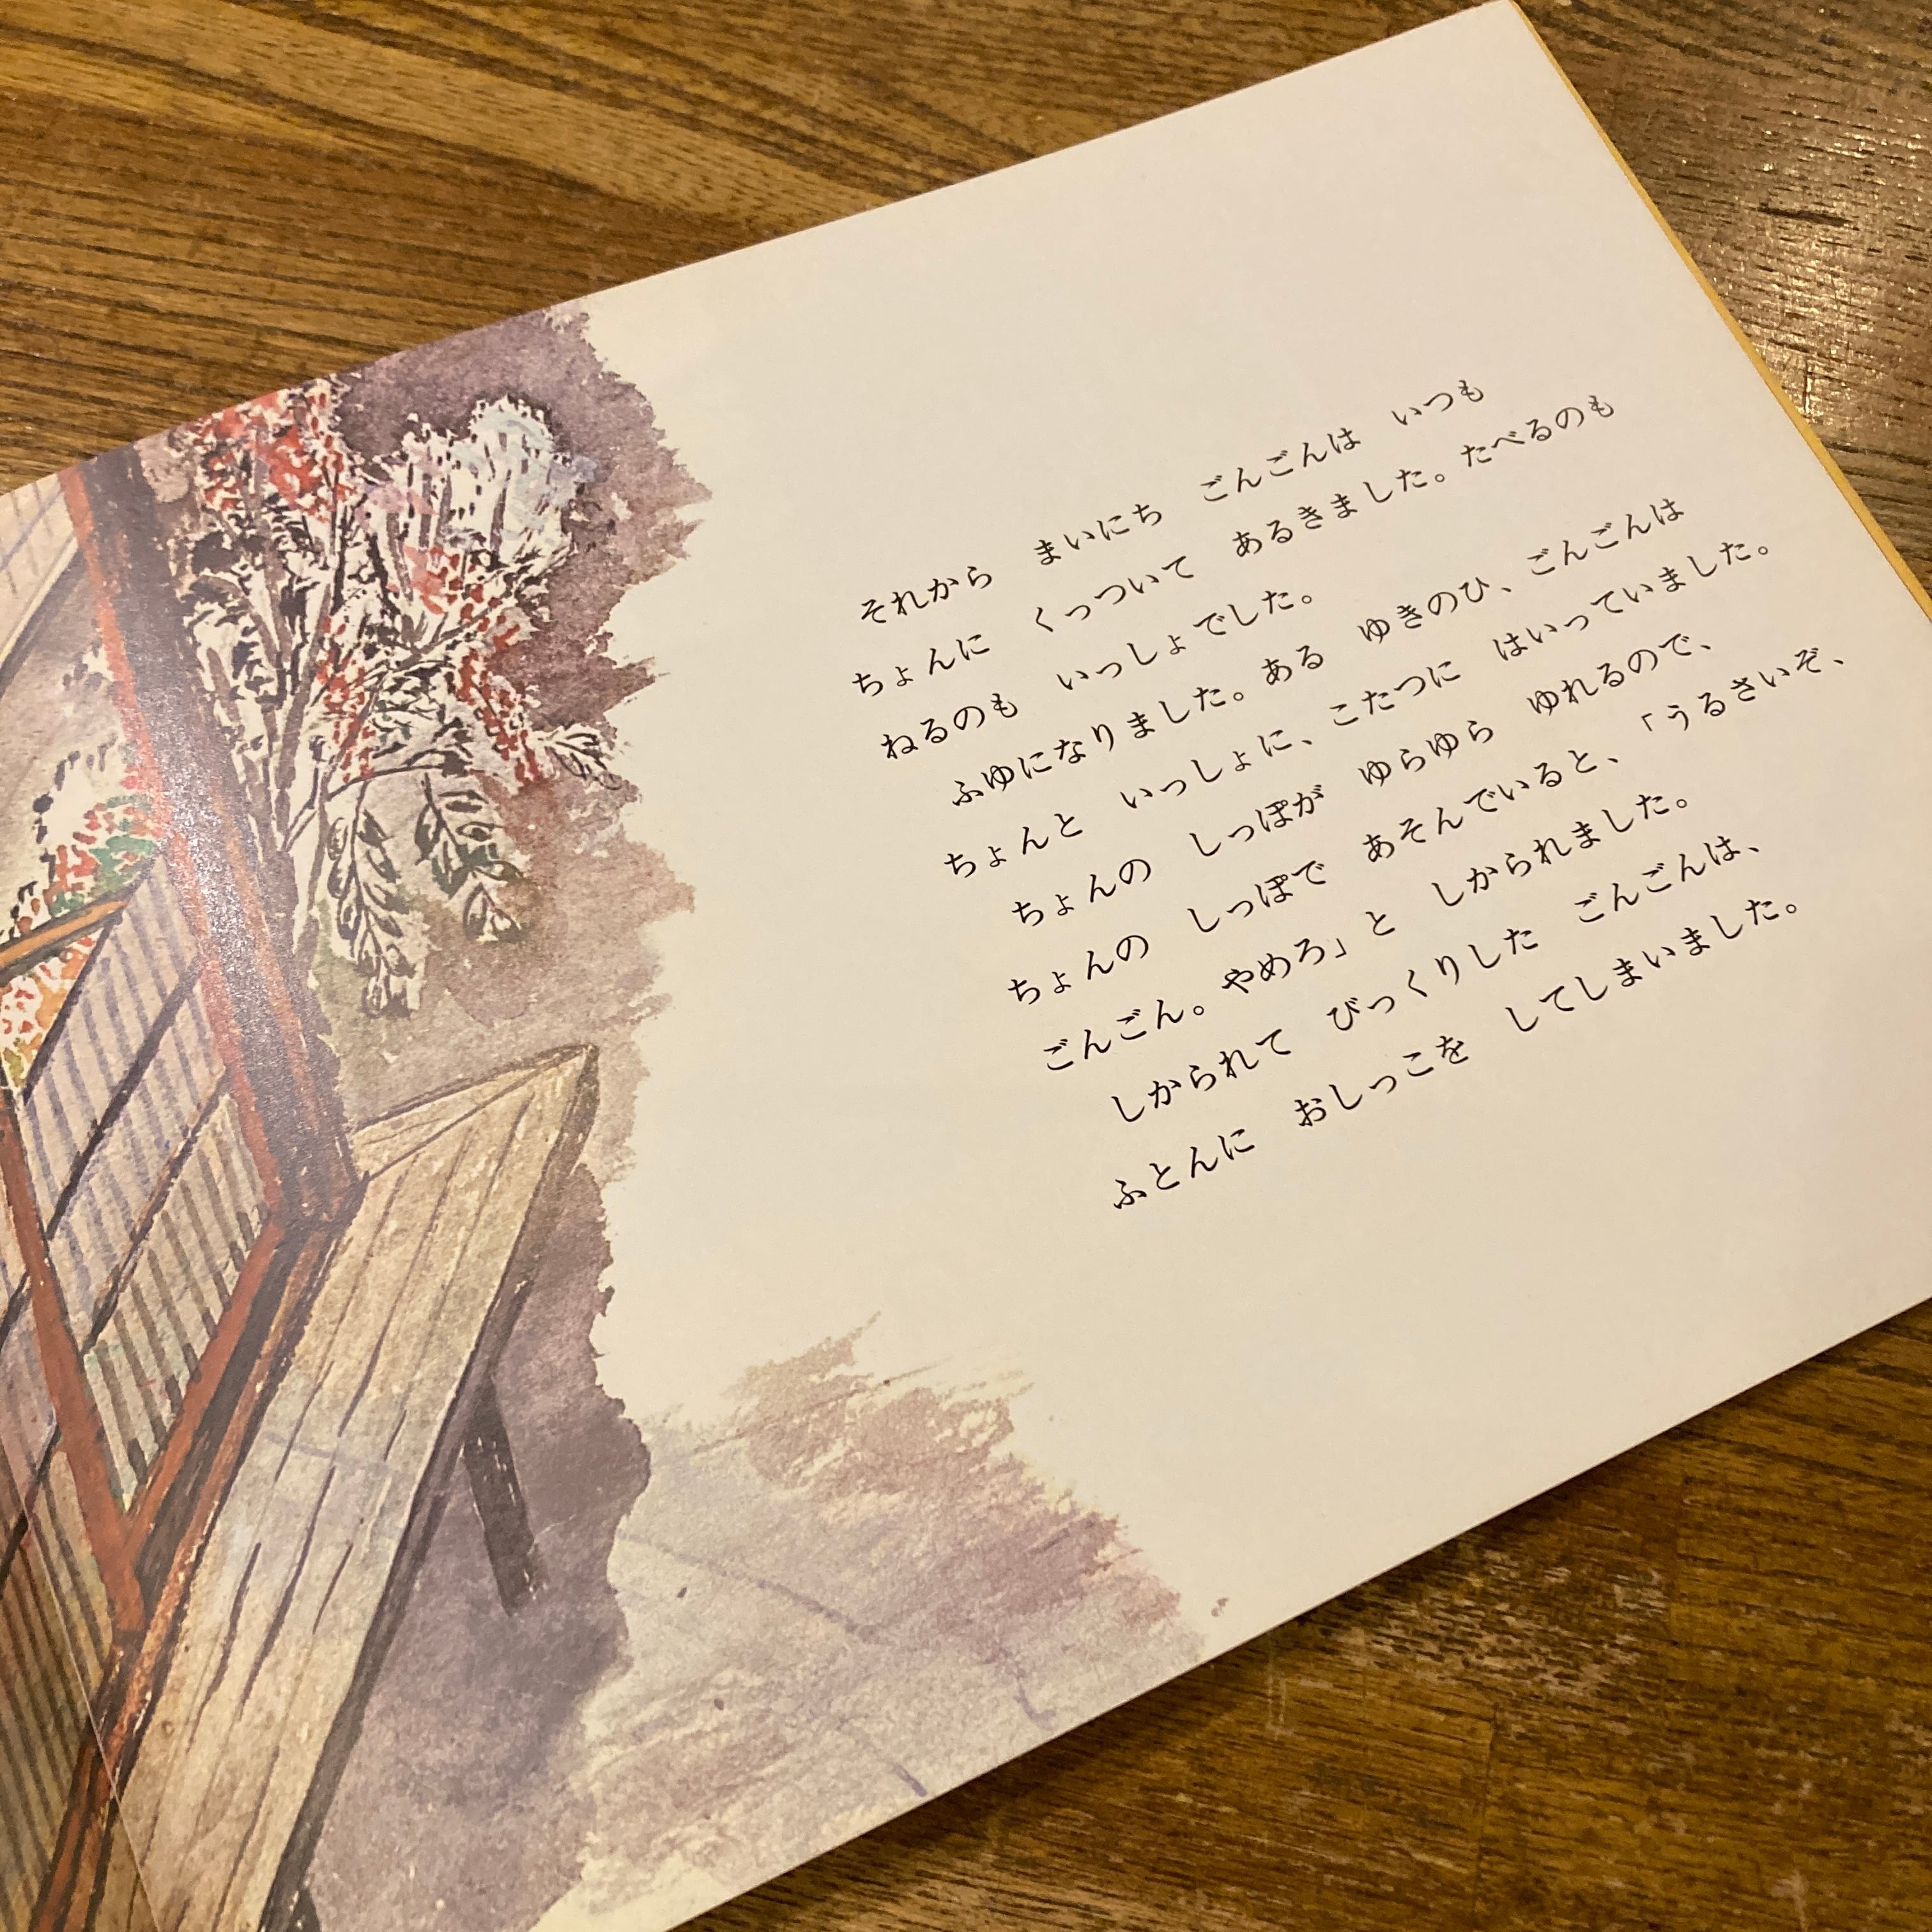 それから　まいにち　ごんごんは　いつも
ちょんに　くっついて　あるきました。たべるのも
ねるのも　いっしょでした。
ふゆになりました。ある　ゆきのひ、ごんごんは
ちょんと　いっしょに、こたつに　はいっていました。
ちょんの　しっぽが　ゆらゆら　ゆれるので、
ちょんの　しっぽで　あそんでいると、「うるさいぞ、
ごんごん。やめろ」と　しかられました。
しかられて　びっくりした　ごんごんは、
ふとんに　おしっこを　してしまいました。